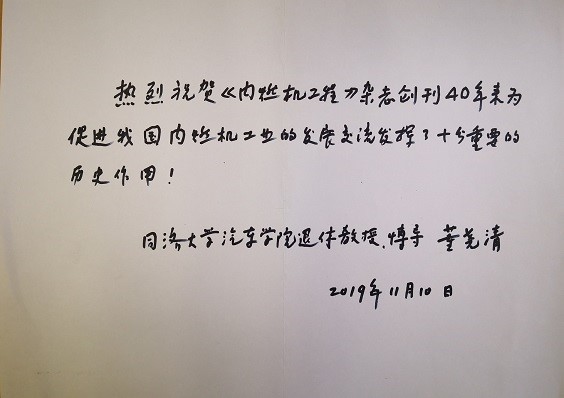 热烈祝贺《内燃机工程》杂志创刊40年来为
促进我国内燃机工业的发展交流发挥了十分重要的
历史作用！
同济大学汽车学院退休教授、博导 董尧清
2019年11月10日